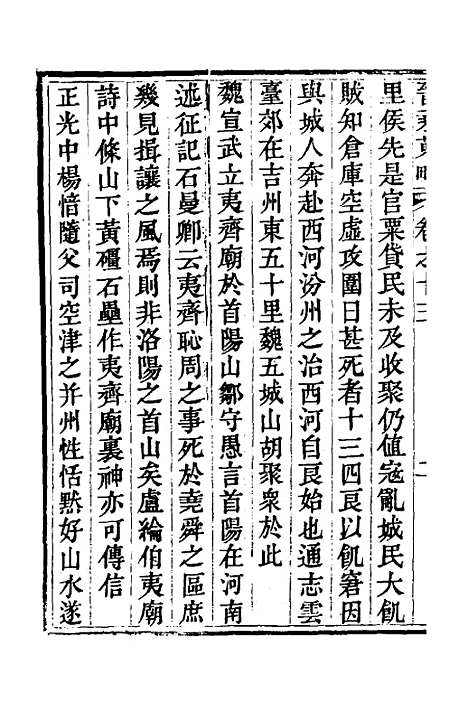 晉乘蒐略 卷之十三 二
里侯先是官粟貸民未及收聚仍値寇亂城民大飢
賊知倉庫空虛攻圍日甚死者十三四良以飢窘因
與城人奔赴西河汾州之治西河自良始也通志雲
臺郊在吉州東五十里魏五城山胡聚衆於此
魏宣武立夷齊廟於首陽山鄒守愚言首陽在河南
述征記石曼卿云夷齊恥周之事死於堯舜之區庶
幾見揖讓之風焉則非洛陽之首山矣盧綸伯夷廟
詩中條山下黃礓石壘作夷齊廟裏神亦可傳信
正光中楊愔隨父司空津之并州性恬默好山水遂